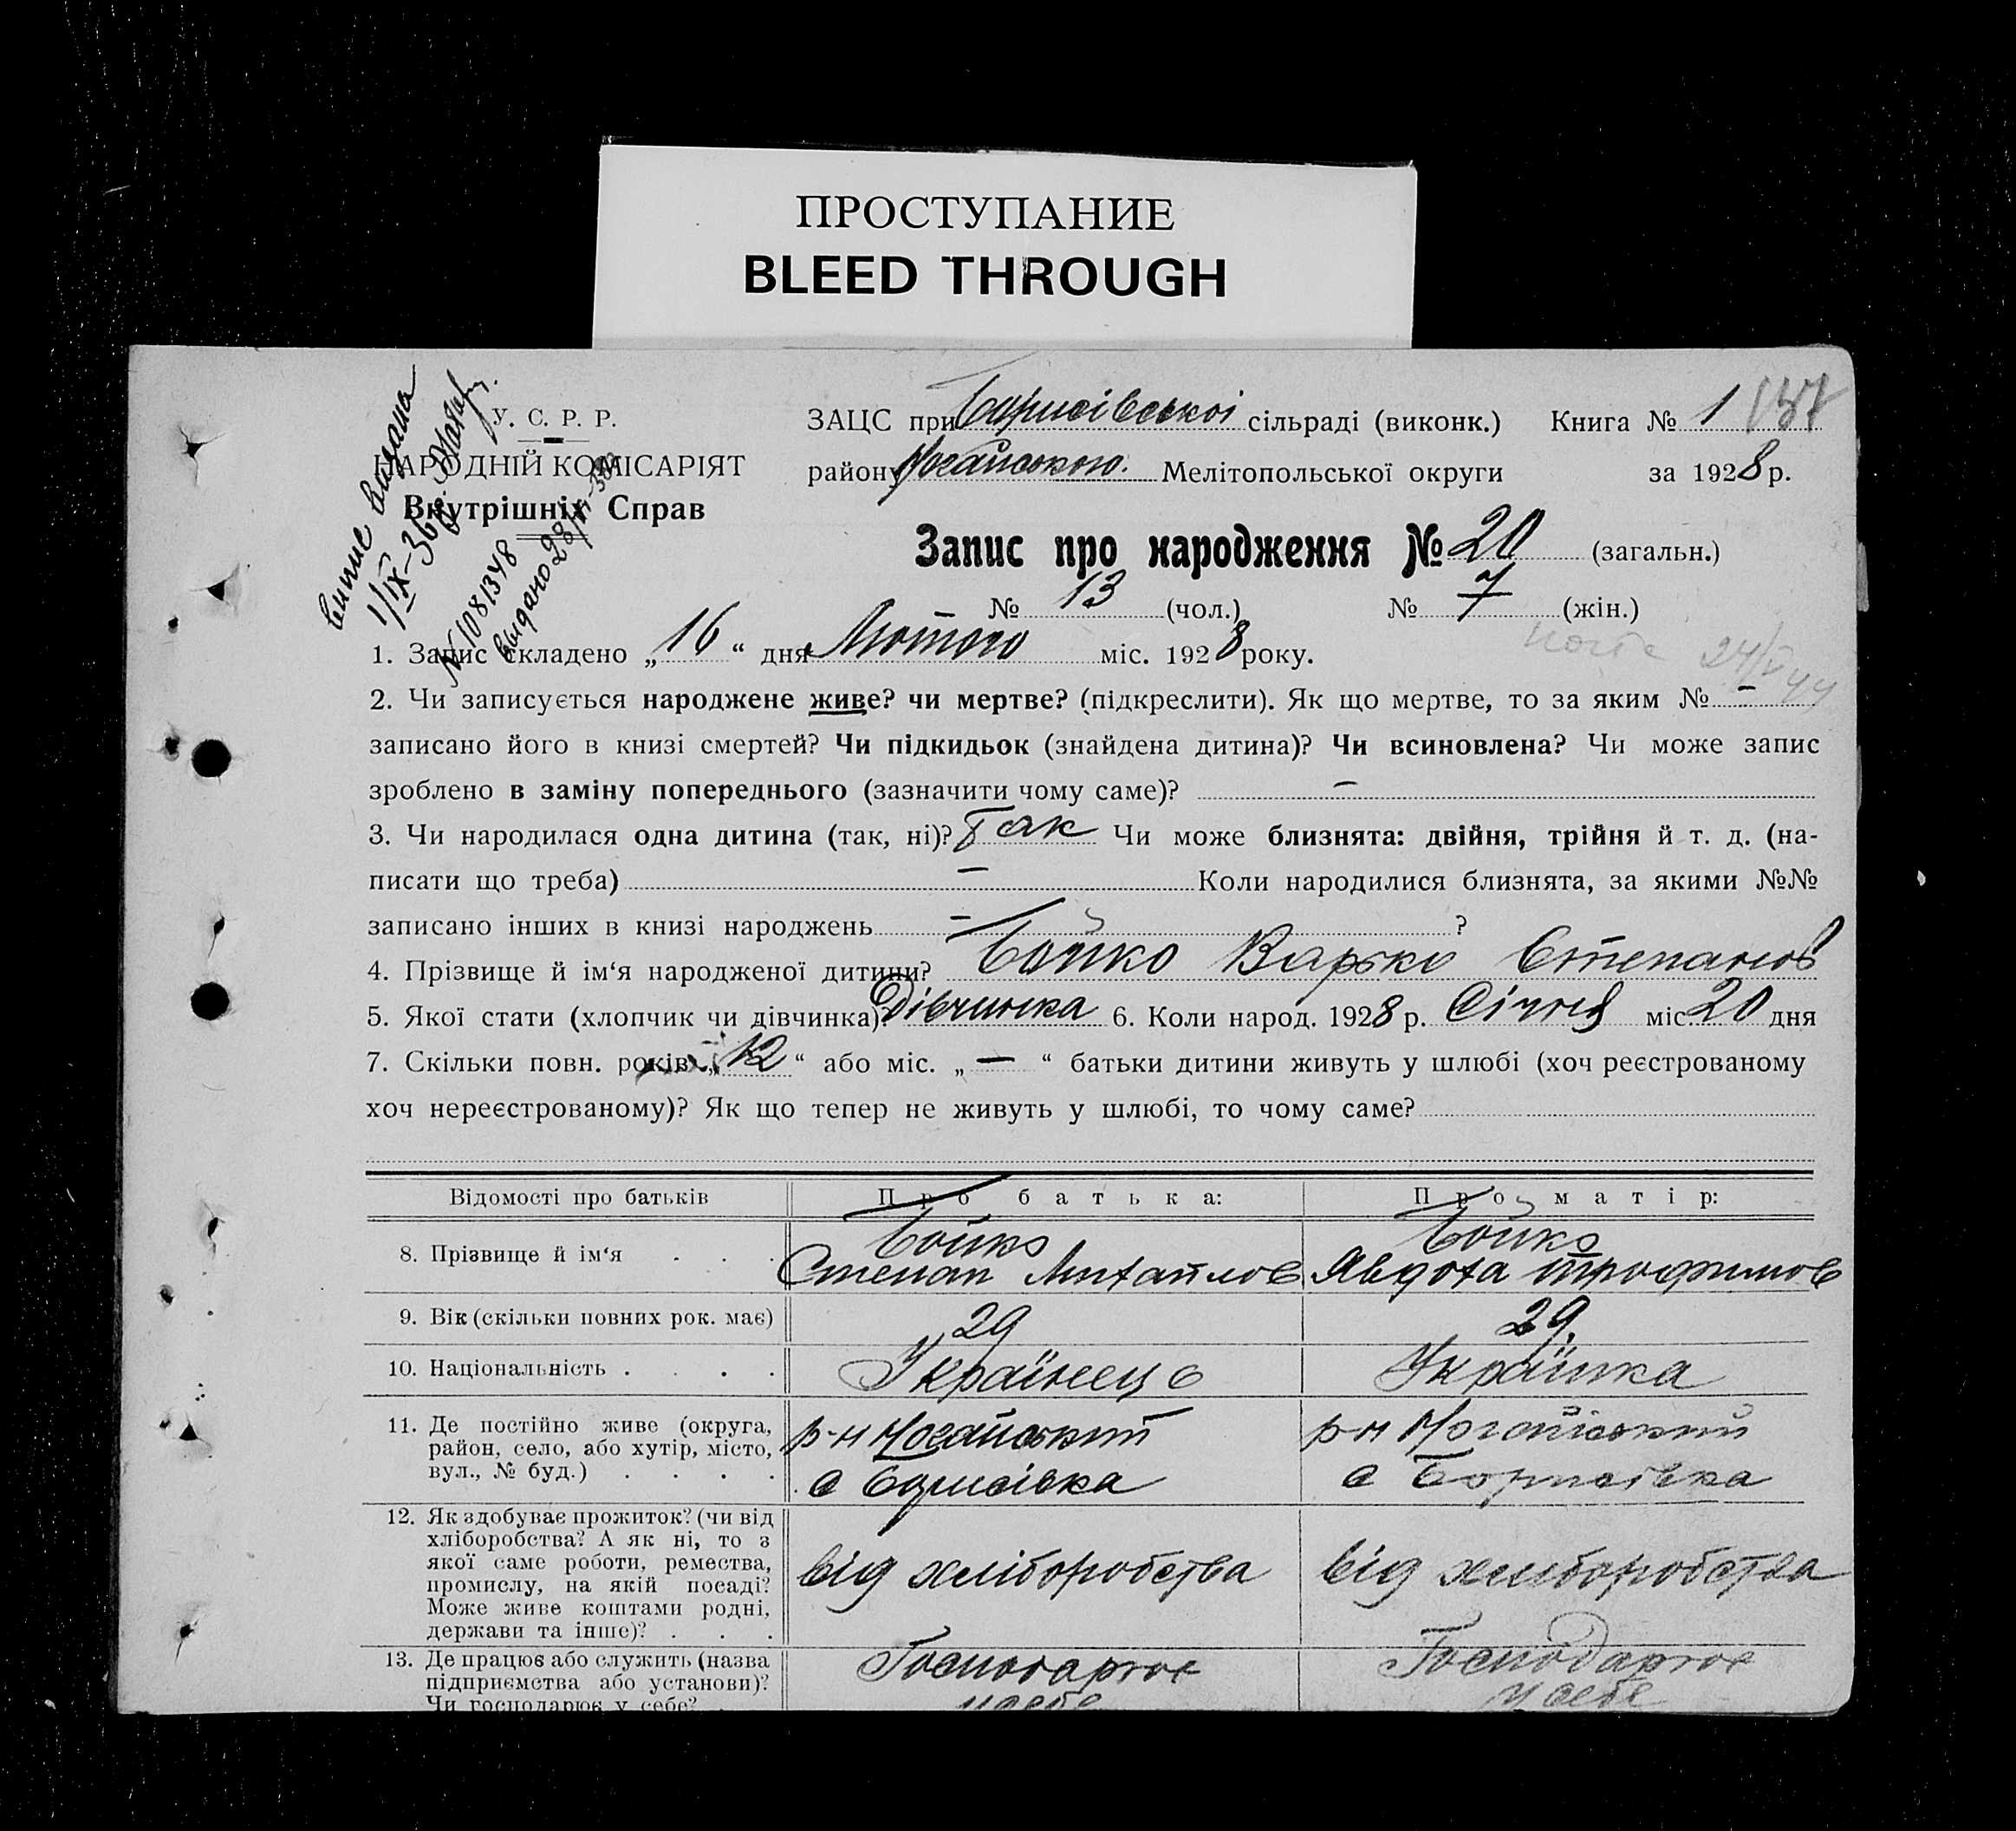 ПРОСТУПАНИЕ
BLEED THROUGH
У. С. Р. Р.
НАРОДНІЙ КОМІСАРІЯТ
Внутрішніх Справ
випис видана
1/IX-36
N 1081348
выдано 28/
ЗАЦС при Борисівської сільраді (виконк.) Книга № 1 137
району Ногайського. Мелітопольської округи за 1928 р.
Запис про народження № 20 (загальн.)
№ 13 (чол.) № 7 (жін.)
1. Запис складено „16“ дня Лютого міс. 1928 року.
24/V 44
2. Чи записується народжене живе? чи мертве? (підкреслити). Як що мертве, то за яким № –
записано його в книзі смертей? Чи підкидьок (знайдена дитина)? Чи всиновлена? Чи може запис
зроблено в заміну попереднього (зазначити чому саме)? –
3. Чи народилася одна дитина (так, ні)? Так Чи може близнята: двійня, трійня й т. д. (на-
писати що треба) – Коли народилися близнята, за якими №№
записано інших в книзі народжень – ?
4. Прізвище й ім‘я народженої дитини? Бойко Варько Степанов
5. Якої статі (хлопчик чи дівчинка). Дівчинка 6. Коли народ. 1928 р. Січня міс. 20 дня
7. Скільки повн. років „12“ або міс. „—“ батьки дитини живуть у шлюбі (хоч реєстрованому
хоч нереєстрованому)? Як що тепер не живуть у шлюбі, то чому саме?
Відомості про батьків Про батька: Про матір:
8. Прізвище й ім‘я . . . Бойко Бойко
Степан Михайлов Явдоха Трофимов
9. Вік (скільки повних рок. має) 29 29.
10. Національність . . . . Українець Українка
11. Де постійно живе (округа, р-н Ногайський р-н Ногайський
район, село, або хутір, місто,
вул., № буд.) . . . . с Борисівка с Борисівка
12. Як здобуває прожиток? (чи від
хліборобства? А як ні, то з
якої саме роботи, ремества, від хліборобства від хліборобства
промислу, на якій посаді?
Може живе коштами родні,
держави та інше)? . . .
13. Де працює або служить (назва Господарює Господарює
підприємства або установи)? у себе у себе
Чи господарює у себе? .